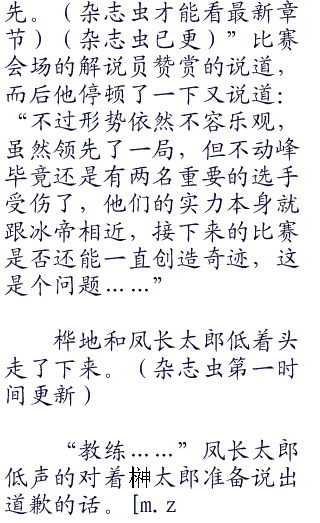 先。（杂志虫才能看最新章
节）（杂志虫已更）”比赛
会场的解说员赞赏的说道，
而后他停顿了一下又说道：
“不过形势依然不容乐观，
虽然领先了一局，但不动峰
毕竟还是有两名重要的选手
受伤了，他们的实力本身就
跟冰帝相近，接下来的比赛
是否还能一直创造奇迹，这
是个问题……”
桦地和凤长太郎低着头
走了下来。（杂志虫第一时
间更新）
“教练……”凤长太郎
低声的对着榊太郎准备说出
道歉的话。[m.z